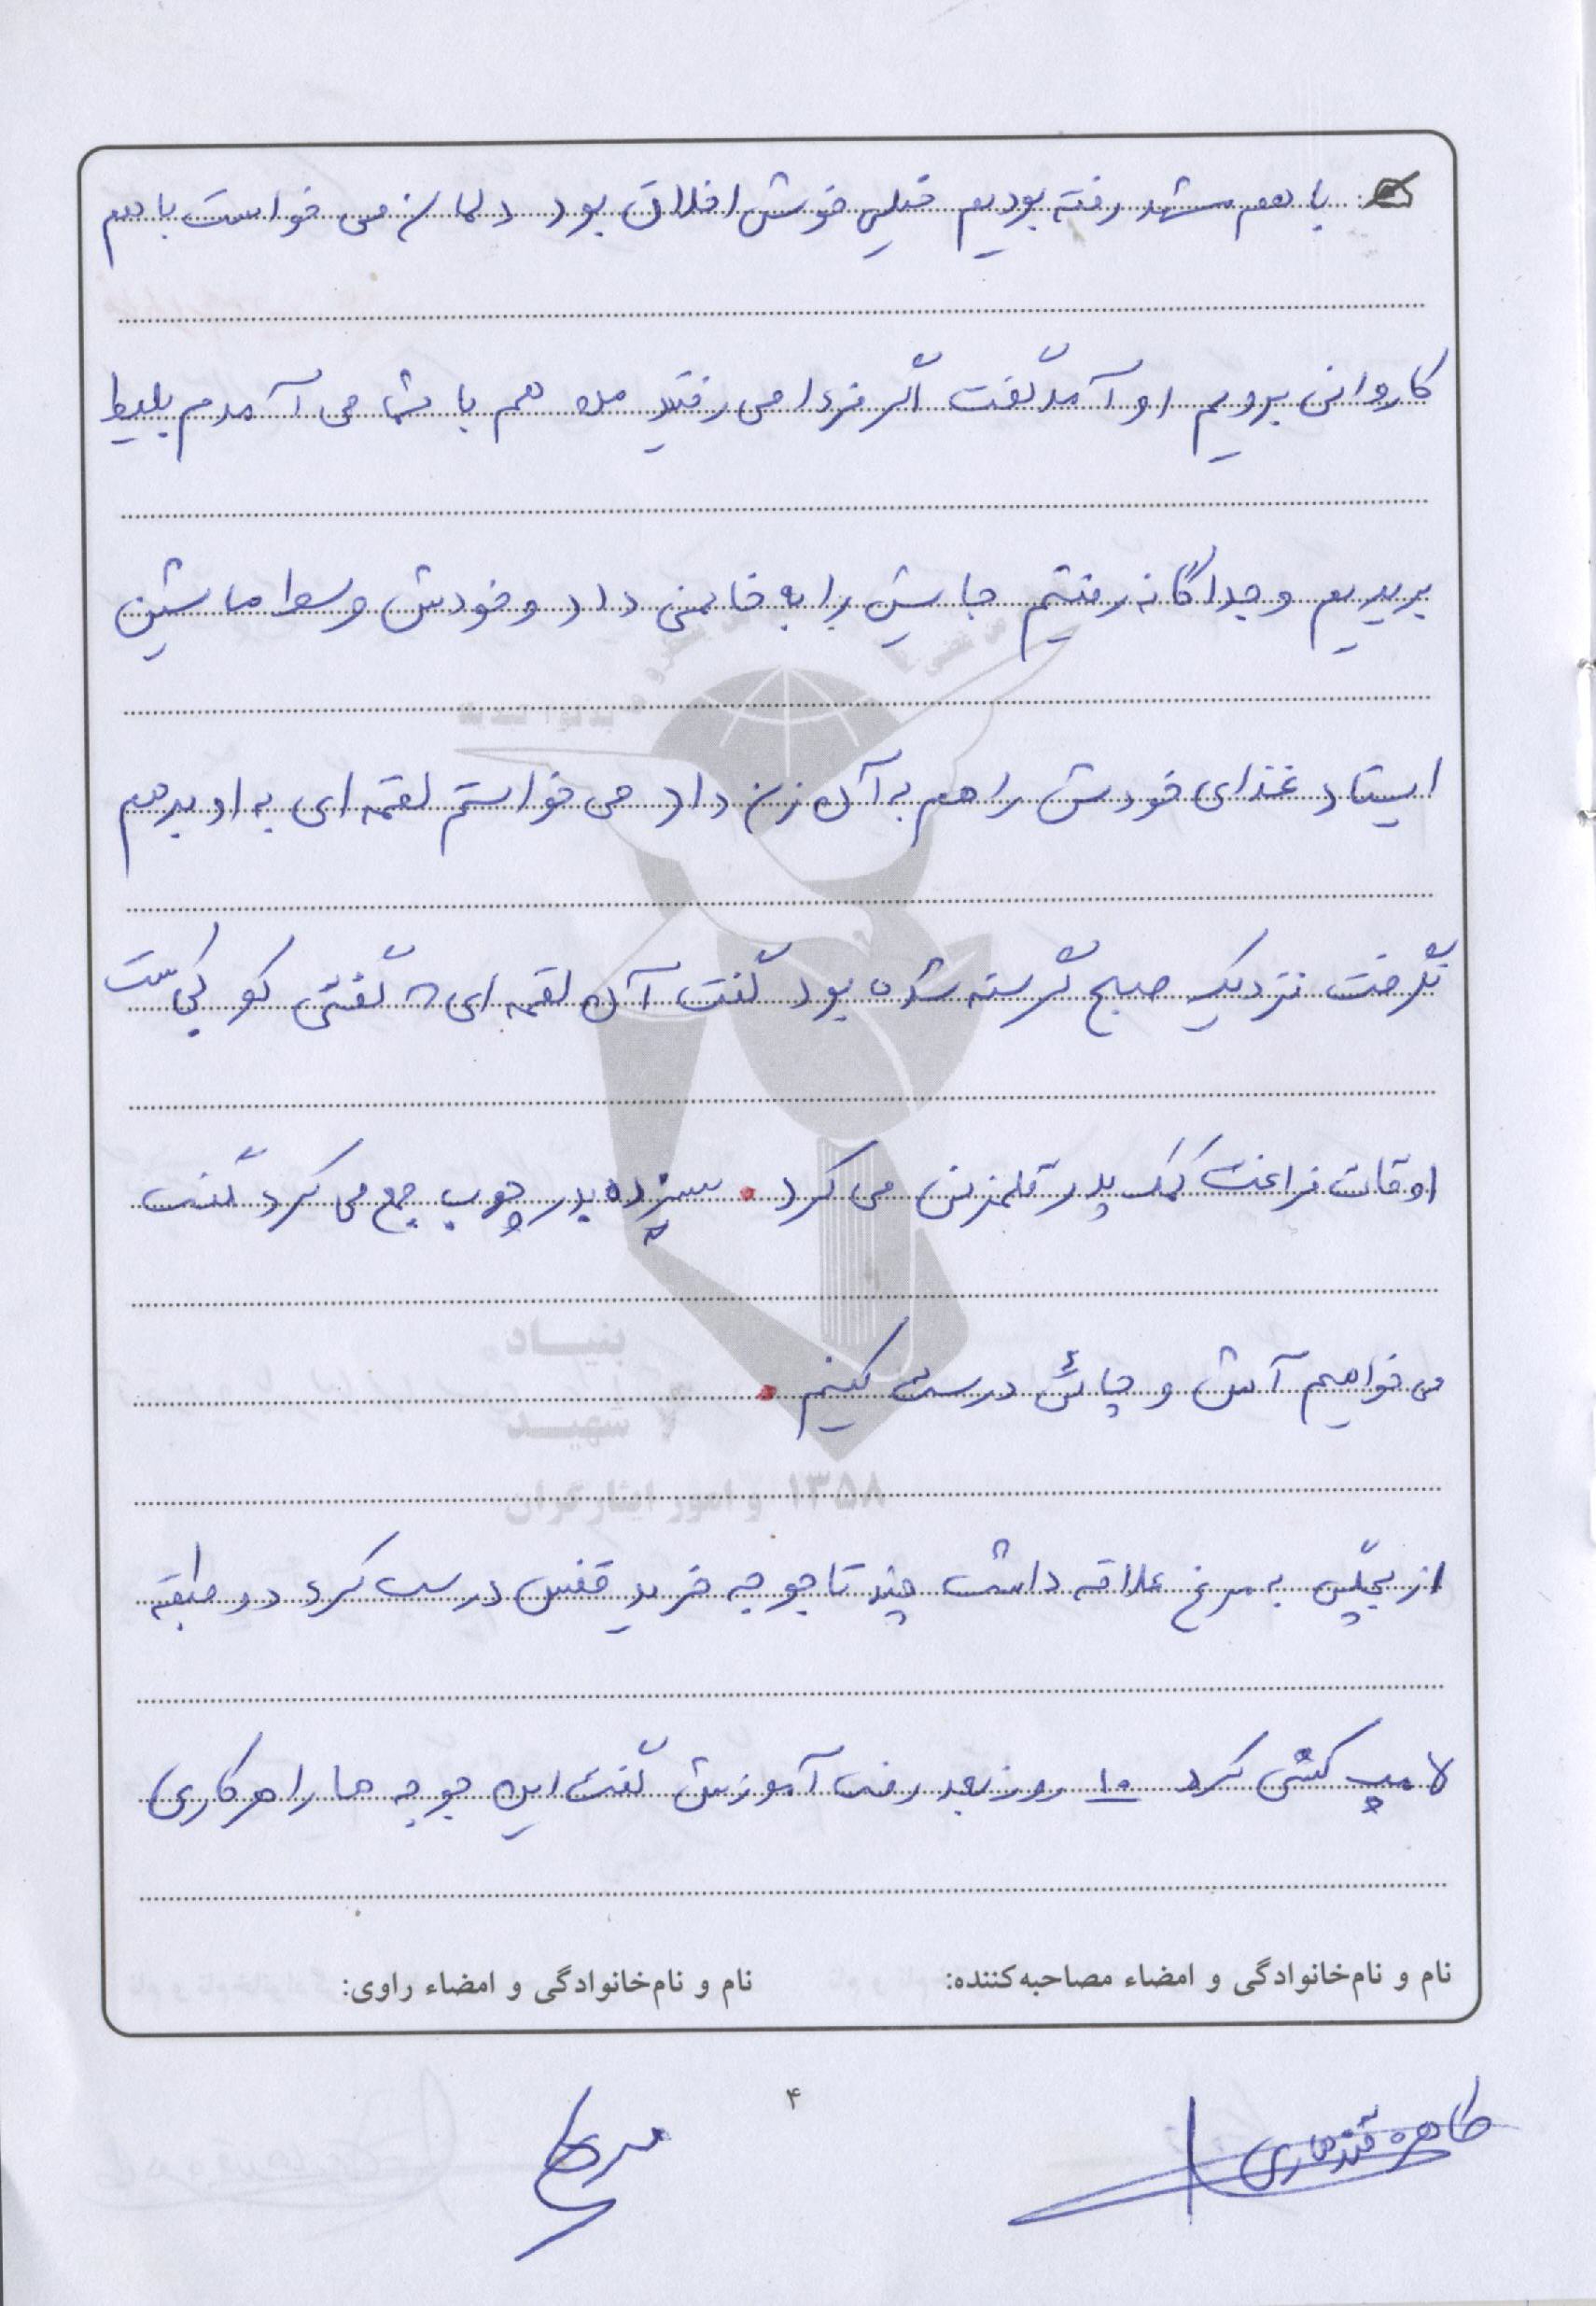 با هم مشهد رفته بودیم خیلی خوش اخلاق بود دلمان می خواست با هم
کاروانی برویم او آمد گفت اگر فردا می رفتید من هم با شما می آمدم بلیط
بریدیم و جداگانه رفتیم جایش را به خانمی داد و خودش وسط ماشین
ایستاد غذای خودش را هم به آن زن داد می خواستم لقمه ای به او بدهم
نگرفت نزدیک صبح گرسنه شده بود گفت آن لقمه ای گفتی کو
اوقات فراغت کمک پدر قلمزنی می کرد . سیزده بدر چوب جمع می کرد گفت
می خواهیم آتش و چائی درست کنیم .
از بچگی به مرغ علاقه داشت چند تا جوجه خرید قفس درست کرد دو طبقه
لامپ کشی کرد ۱۰ روز بعد رفت آموزش گفت این جوجه ها را هر کاری
نام و نام‌خانوادگی و امضاء مصاحبه‌کننده:
نام و نام‌خانوادگی و امضاء راوی:
۴
طاهره قندهاری
بنیاد
شهید
و امور ایثارگران
۱۳۵۸